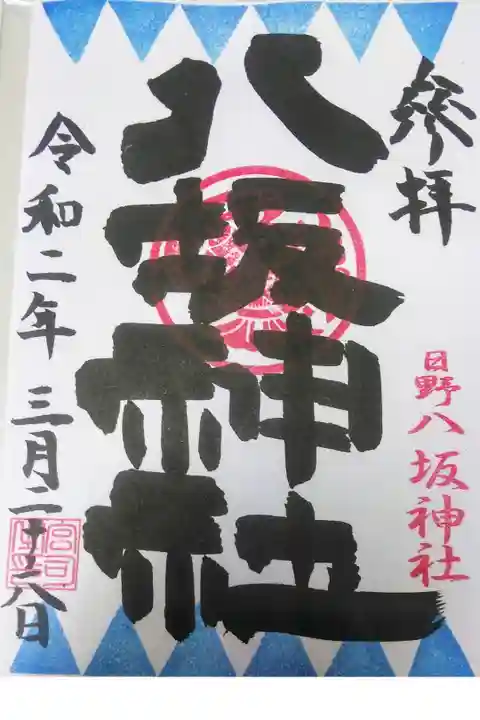 參拝
日野八坂神社
八坂神社
令和二年三月二十八日
宮司